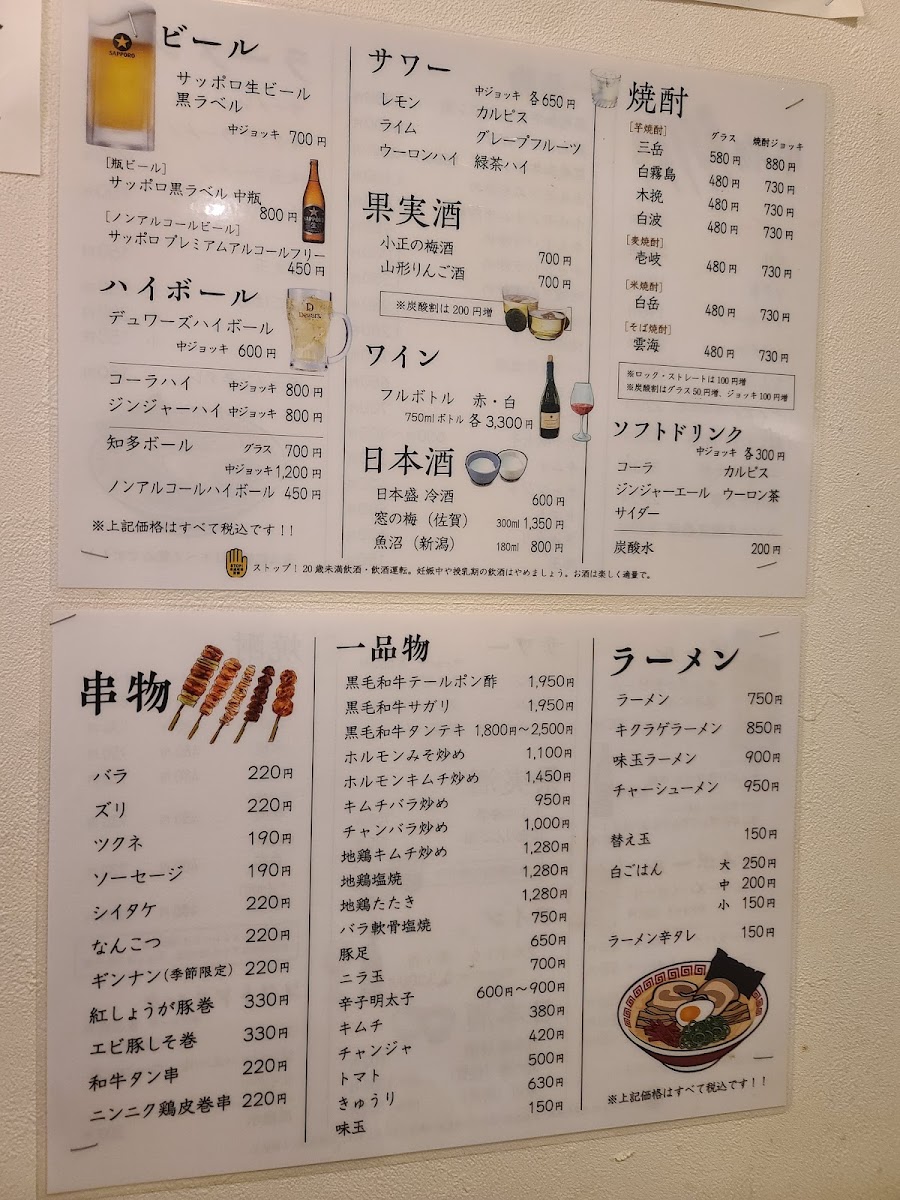 ビール
SAPPORO
サッポロ生ビール
黒ラベル
中ジョッキ 700円
[瓶ビール]
サッポロ黒ラベル 中瓶
800円
[ノンアルコールビール]
サッポロ プレミアムアルコールフリー
450円
ハイボール
デュワーズハイボール
中ジョッキ 600円
コーラハイ 中ジョッキ 800円
ジンジャーハイ 中ジョッキ 800円
知多ボール グラス 700円
中ジョッキ 1,200円
ノンアルコールハイボール 450円
※上記価格はすべて税込です！！
サワー
中ジョッキ 各650円
レモン カルピス
ライム グレープフルーツ
ウーロンハイ 緑茶ハイ
果実酒
小正の梅酒 700円
山形りんご酒 700円
※炭酸割は200円増
ワイン
フルボトル 赤・白
750mlボトル 各3,300円
日本酒
日本盛 冷酒 600円
窓の梅（佐賀） 300ml 1,350円
魚沼（新潟） 180ml 800円
焼酎
グラス 焼酎ジョッキ
[芋焼酎]
三岳 580円 880円
白霧島 480円 730円
木挽 480円 730円
白波 480円 730円
[麦焼酎]
壱岐 480円 730円
[米焼酎]
白岳 480円 730円
[そば焼酎]
雲海 480円 730円
※ロック・ストレートは100円増
※炭酸割はグラス50円増、ジョッキ100円増
ソフトドリンク
中ジョッキ 各300円
コーラ カルピス
ジンジャーエール ウーロン茶
サイダー
炭酸水 200円
ストップ！20歳未満飲酒・飲酒運転。妊娠中や授乳期の飲酒はやめましょう。お酒は楽しく適量で。
串物
バラ 220円
ズリ 220円
ツクネ 190円
ソーセージ 190円
シイタケ 220円
なんこつ 220円
ギンナン(季節限定) 220円
紅しょうが豚巻 330円
エビ豚しそ巻 330円
和牛タン串 220円
ニンニク鶏皮巻串 220円
一品物
黒毛和牛テールポン酢 1,950円
黒毛和牛サガリ 1,950円
黒毛和牛タンテキ 1,800円〜2,500円
ホルモンみそ炒め 1,100円
ホルモンキムチ炒め 1,450円
キムチバラ炒め 950円
チャンバラ炒め 1,000円
地鶏キムチ炒め 1,280円
地鶏塩焼 1,280円
地鶏たたき 1,280円
バラ軟骨塩焼 750円
豚足 650円
ニラ玉 700円
辛子明太子 600円〜900円
キムチ 380円
チャンジャ 420円
トマト 500円
きゅうり 630円
味玉 150円
ラーメン
ラーメン 750円
キクラゲラーメン 850円
味玉ラーメン 900円
チャーシューメン 950円
替え玉 150円
白ごはん 大 250円
中 200円
小 150円
ラーメン辛タレ 150円
※上記価格はすべて税込です！！